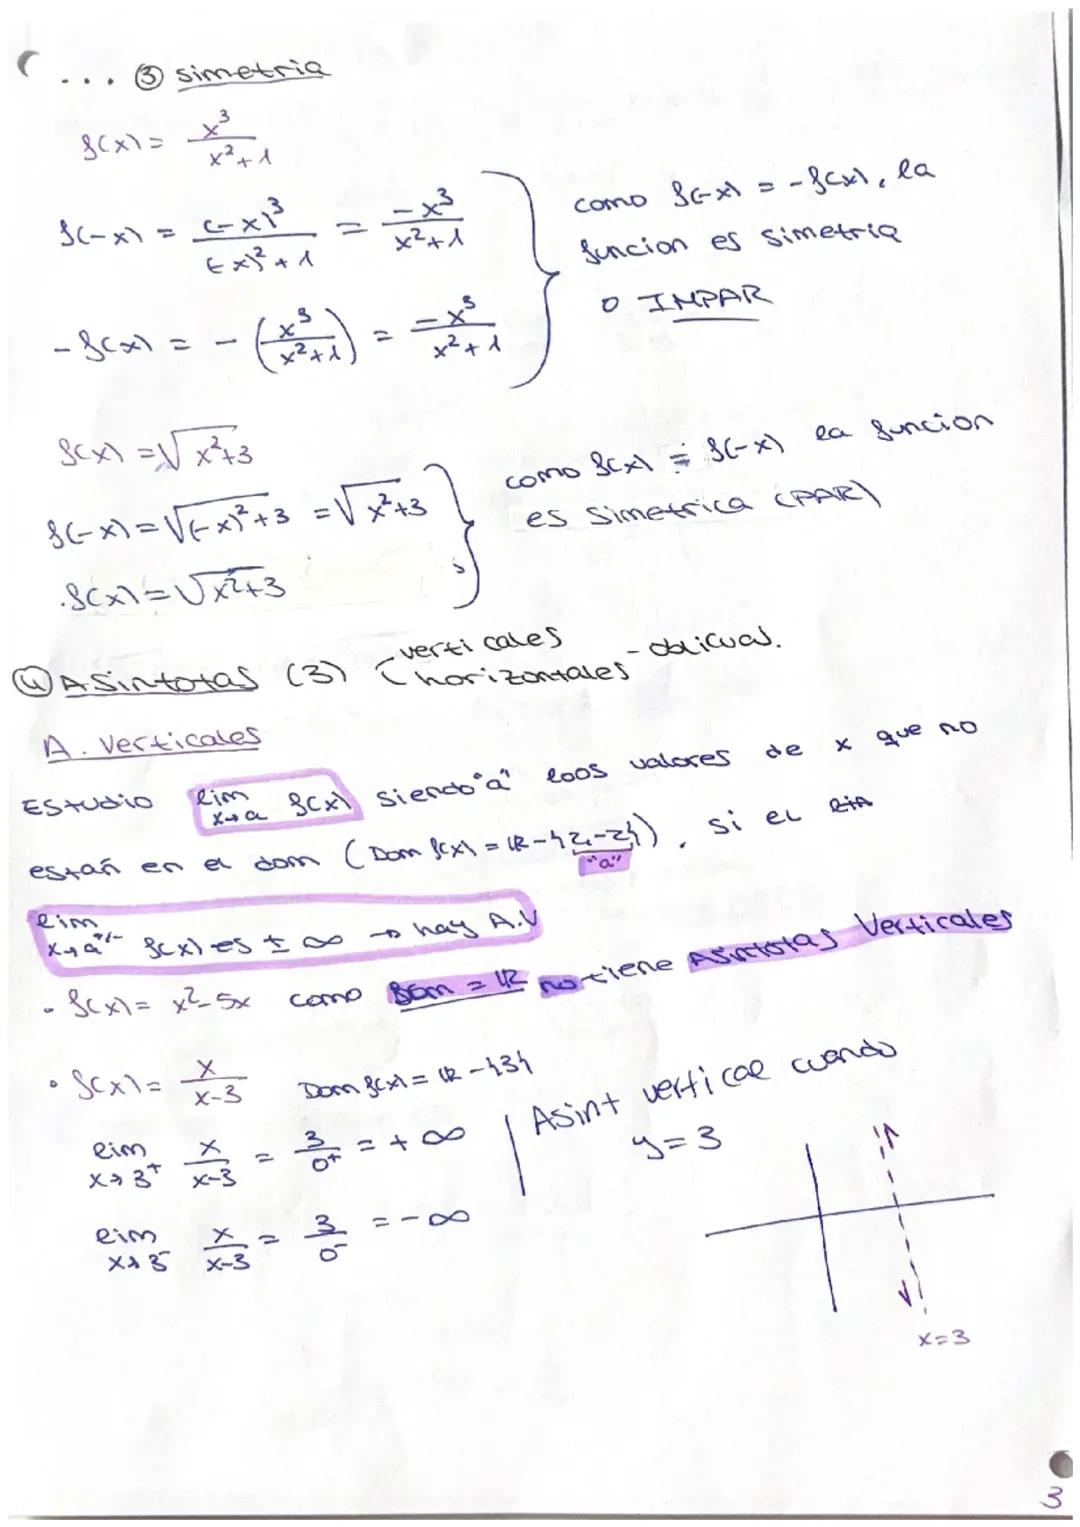 ... ③ simetria
f(x) = x³/(x²+1)
f(-x) = (-x)³/((-x)²+1) = -x³/(x²+1)
-f(x) = -(x³/(x²+1)) = -x³/(x²+1)
como f(-x) = -f(x), la
funcion es simetria
o IMPAR
f(x) = √(x²+3)
f(-x) = √((-x)²+3) = √(x²+3)
f(x) = √(x²+3)
como f(x) = f(-x) la funcion
es simetrica (PAR)
④ Asintotas (3) verticales
horizontales - oblicuas.
A. Verticales
Estudio lim x→a f(x) siendo "a" loos valores de x que no
estań en el dom (Dom f(x) = ℝ-{2,-2}), si el lim
"a"
lim x→a⁺/⁻ f(x) es ±∞ → hay A.V
• f(x) = x²-5x como Dom = ℝ no tiene Asintotas Verticales
• f(x) = x/(x-3) Dom f(x) = ℝ-{3}
lim x→3⁺ x/(x-3) = 3/0⁺ = +∞
lim x→3⁻ x/(x-3) = 3/0⁻ = -∞
Asint vertical cuando
y=3
x=3
3